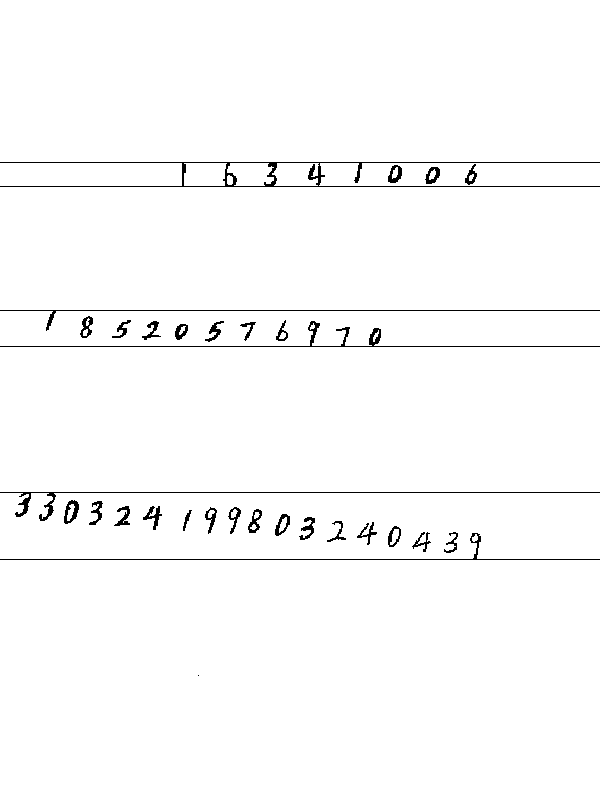 16341006
18520576970
330324199803240439